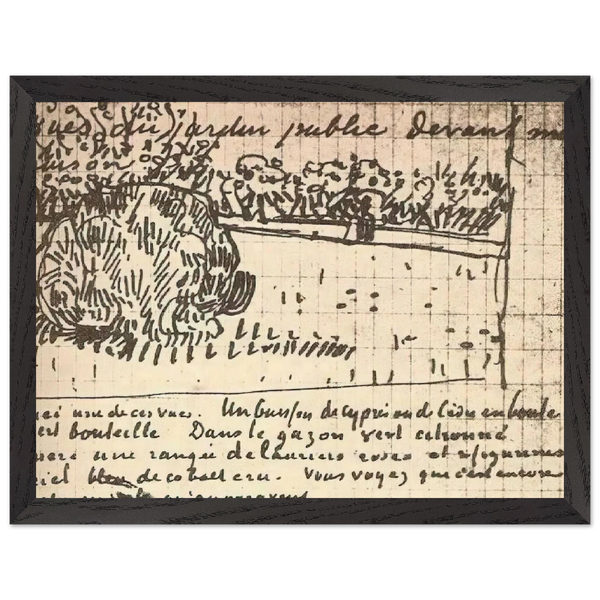 ues du jardin public devant m
ison
ici une de ces vues. Un buisson de cyprès ou de cèdre en boule
ert bouteille Dans le gazon vert citronné
ière une rangée de lauriers roses et
ciel bleu de cobalt cru. Vous voyez que c'est encore